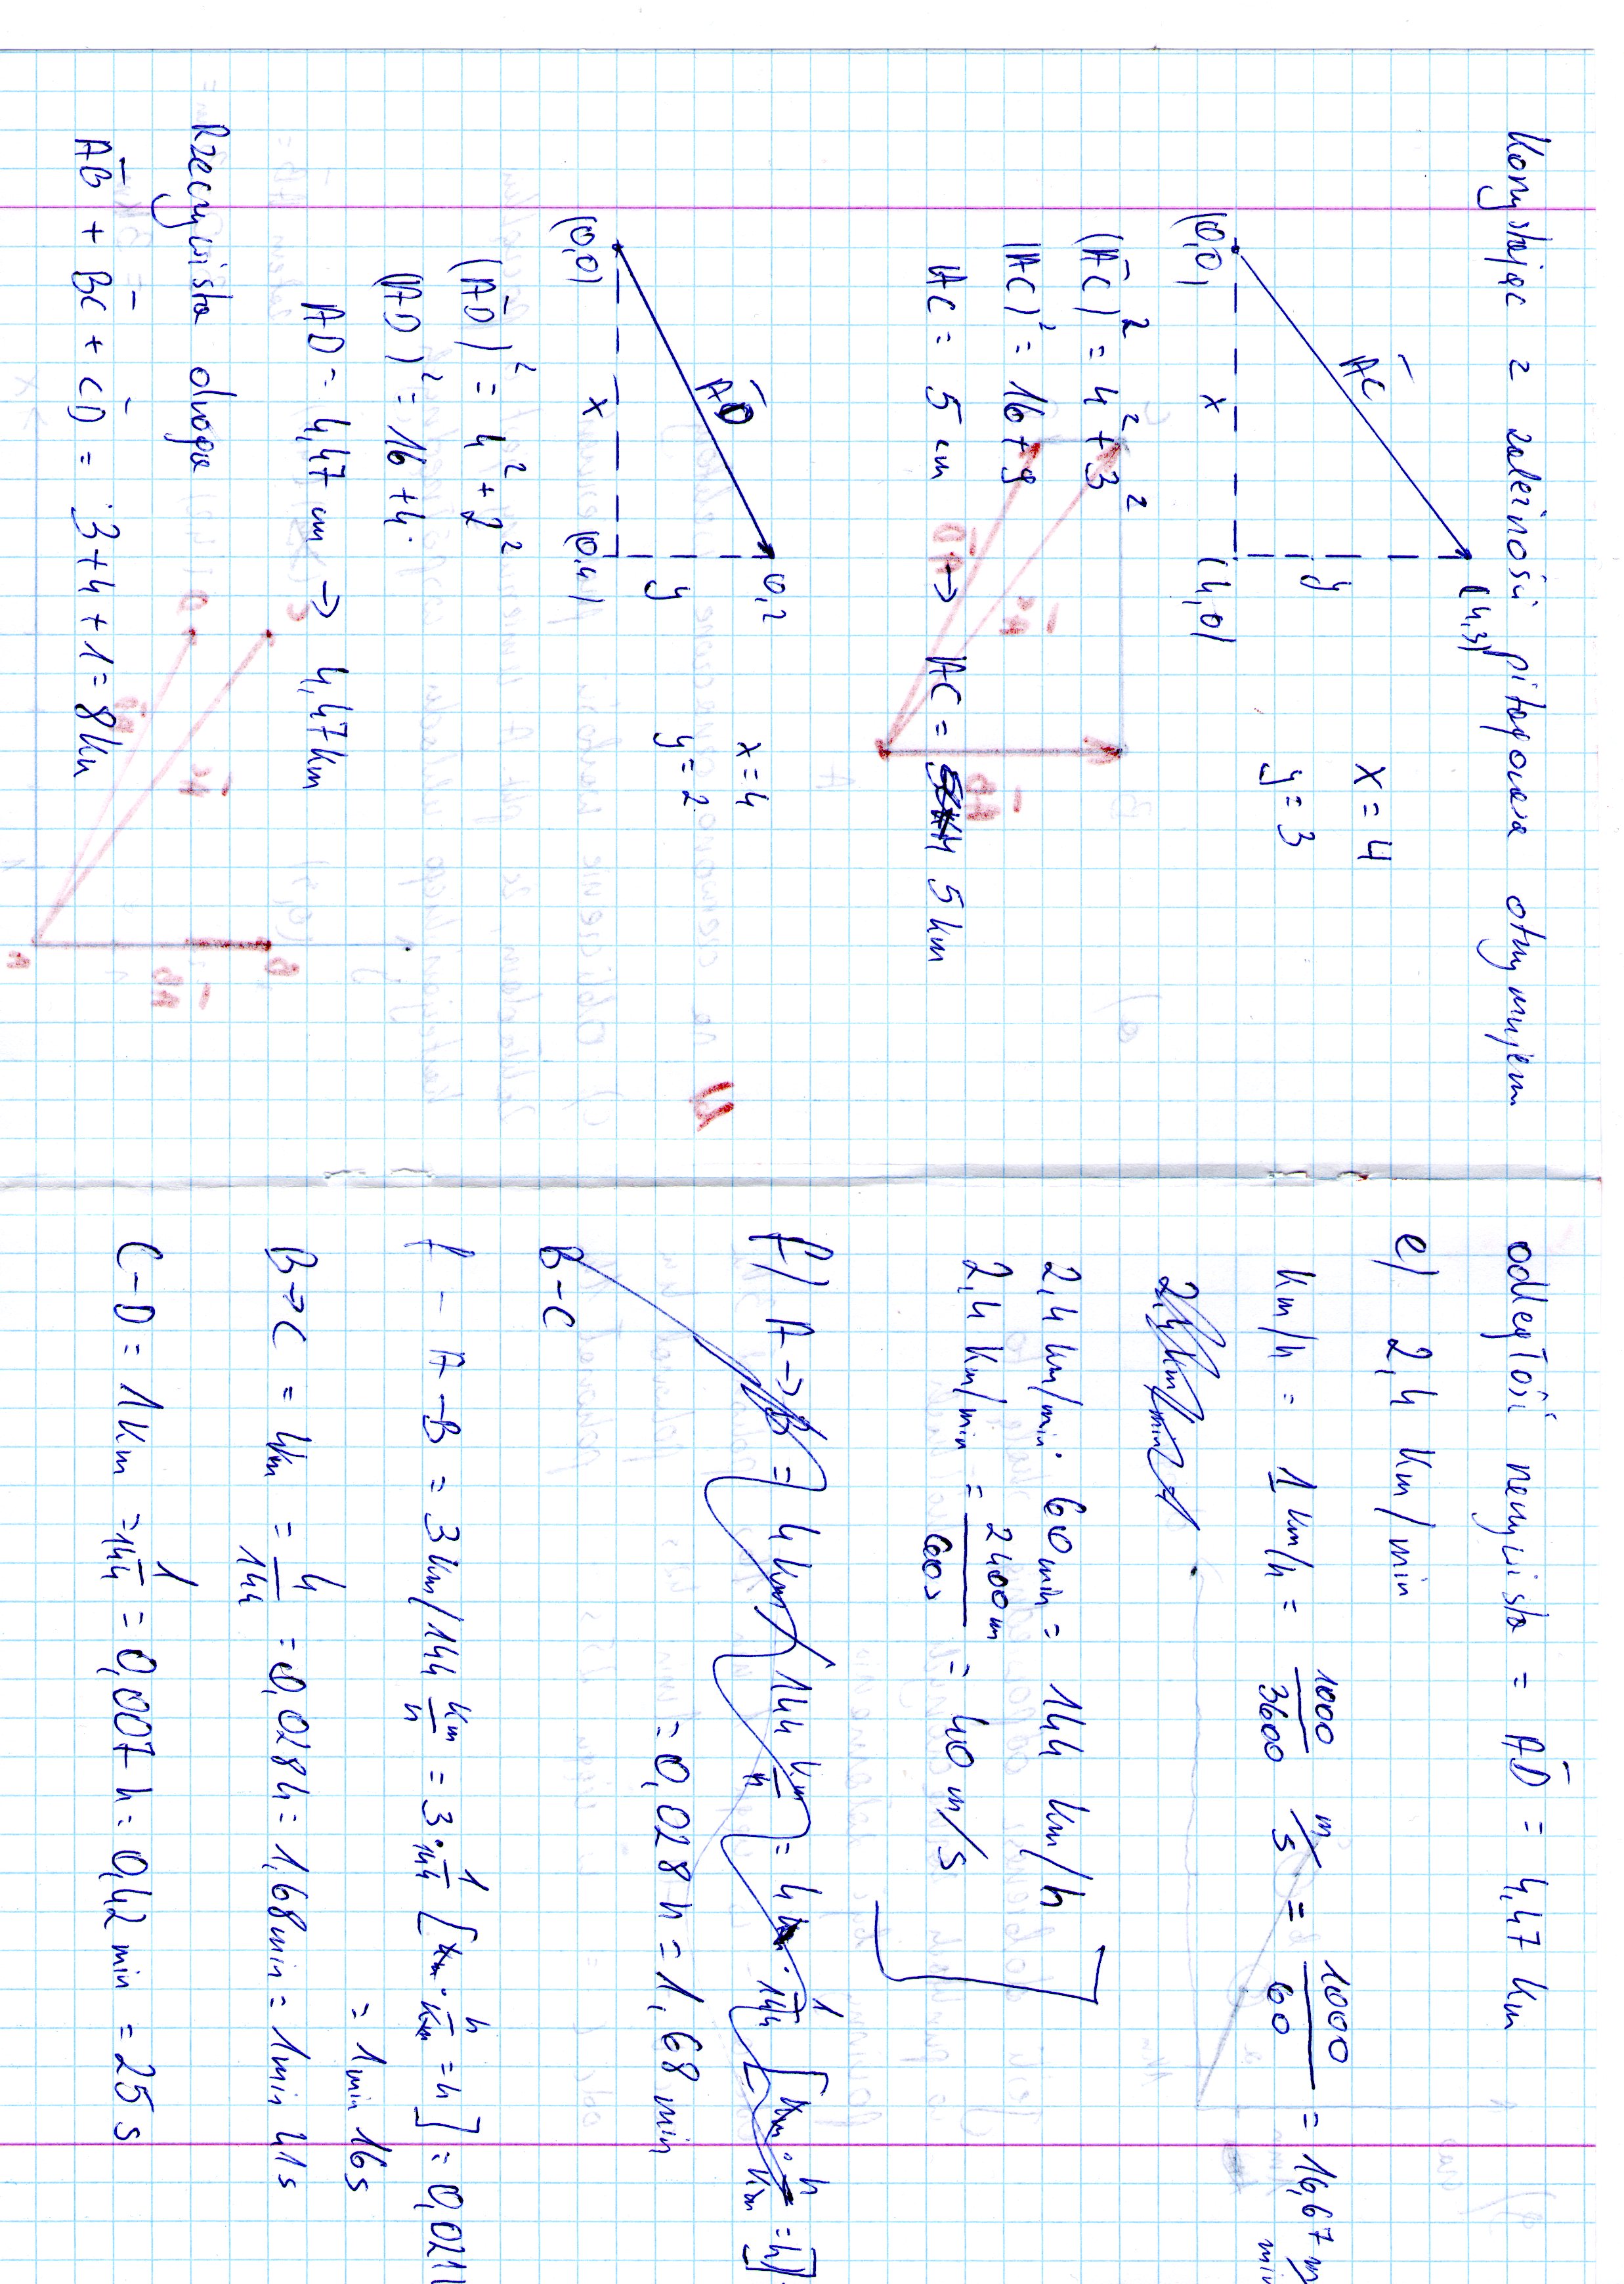 Korzystając z zależności pitagorasa otrzymujem
AC
(4,3)
x = 4
y = 3
y
(0,0)
x
(4,0)
(AC)² = 4² + 3²
(AC)² = 16 + 9
AC = 5 cm → AC = 5 km
AD
0,2
x = 4
y = 2
y
(0,0)
x
(0,4)
(AD)² = 4² + 2²
(AD)² = 16 + 4
AD = 4,47 cm → 4,47 km
Rzeczywista droga
AB + BC + CD = 3 + 4 + 1 = 8 km
odległość rzeczywista = AD = 4,47 km
e) 2,4 km/min
km/h = 1 km/h = 1000/3600 m/s = 1000/60 = 16,67 m/min
2,4 km/min
2,4 km/min · 60 min = 144 km/h
2,4 km/min = 2400 m/60 s = 40 m/s
f) A → B = 4 km / 144 km/h = 4 km · 1/144 [km · h/km = h]
= 0,028 h = 1,68 min
B - C
f - A - B = 3 km / 144 km/h = 3 · 1/144 [km · h/km = h] = 0,021 h
= 1 min 16 s
B → C = 4 km = 4/144 = 0,028 h = 1,68 min = 1 min 41 s
C - D = 1 km = 1/144 = 0,007 h = 0,42 min = 25 s